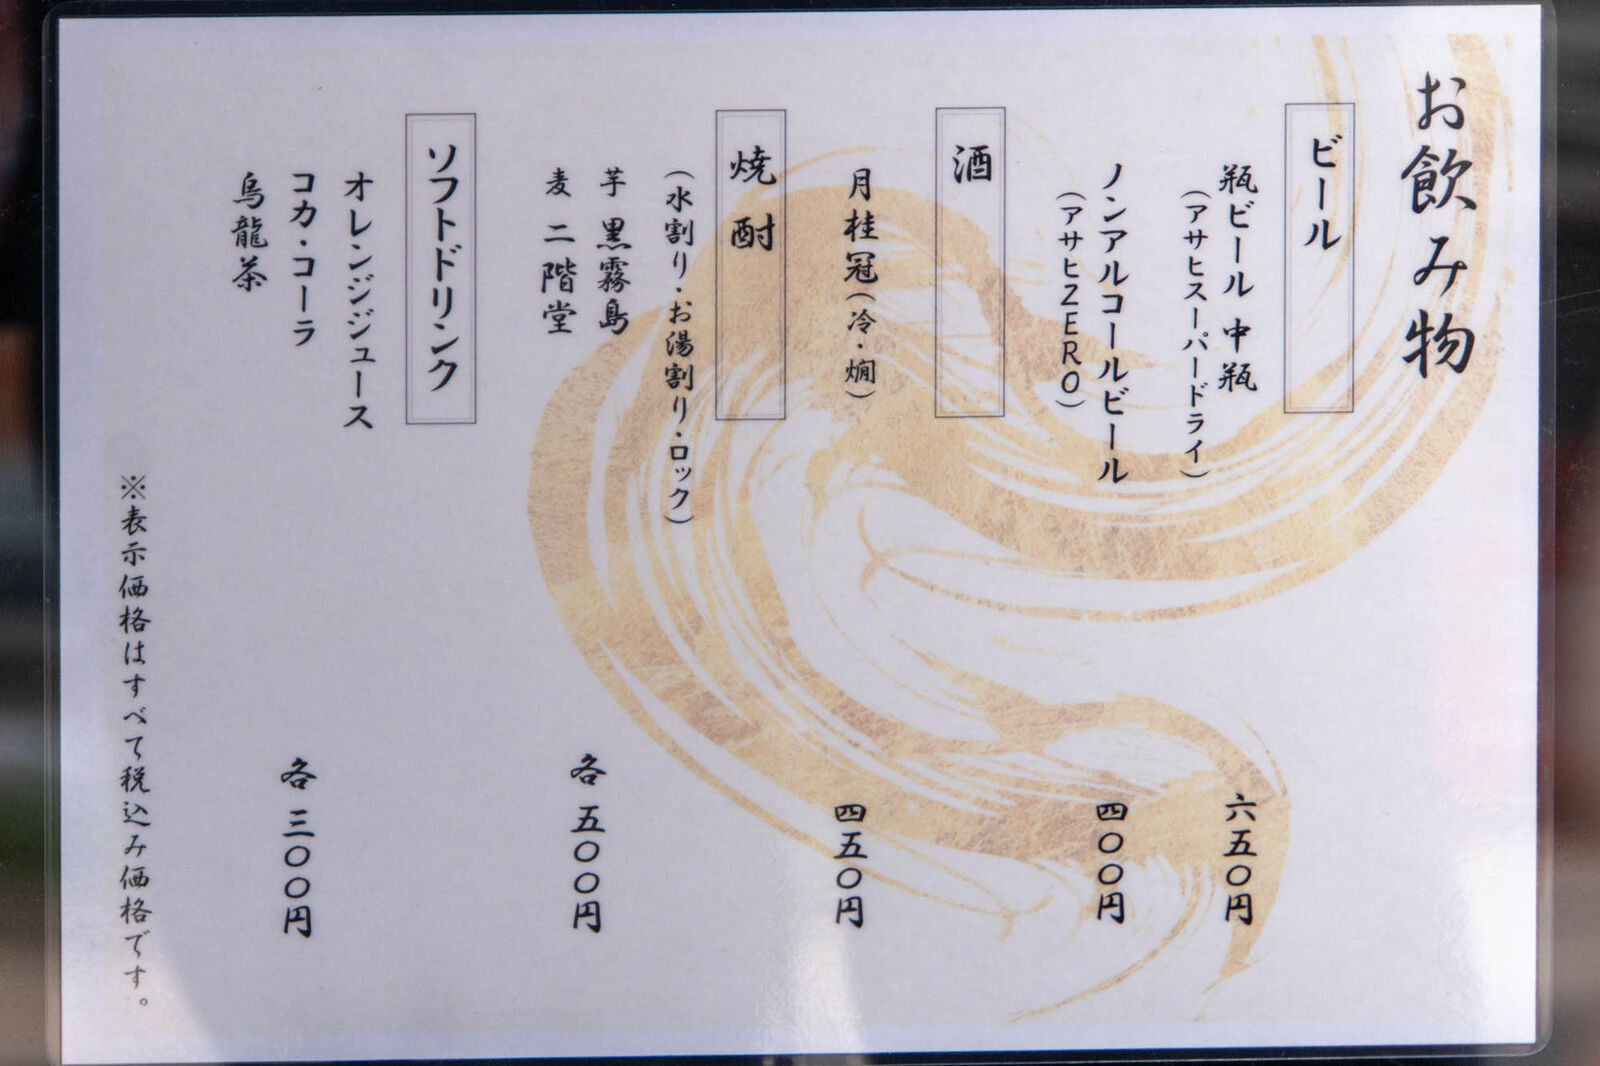 お飲み物
ビール
瓶ビール 中瓶 六五〇円
（アサヒスーパードライ）
ノンアルコールビール 四〇〇円
（アサヒZERO）
酒
月桂冠（冷・燗） 四五〇円
焼酎
（水割り・お湯割り・ロック）
芋 黒霧島
各 五〇〇円
麦 二階堂
ソフトドリンク
オレンジジュース
コカ・コーラ 各 三〇〇円
烏龍茶
※表示価格はすべて税込み価格です。